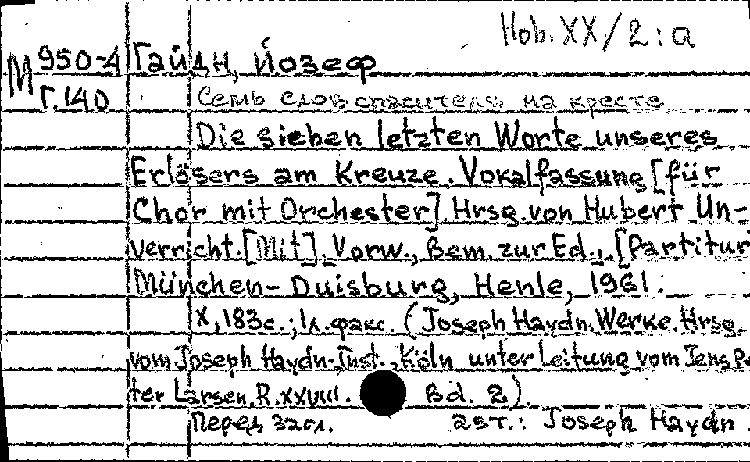 Hob. XX/2:a
М 950-4 Гайдн, Йозеф
Г.140 Семь слов спасителя на кресте
Die sieben letzten Worte unseres
Erlösers am Kreuze. Vokalfassung [für
Chor mit Orchester] Hrsg. von Hubert Un-
verricht. [Mit] Vorw., Bem. zur Ed., [Partitur]
München-Duisburg, Henle, 1961.
X, 183с.; 1л. факс. (Joseph Haydn. Werke. Hrsg.
vom Joseph Haydn-Inst., Köln unter Leitung vom Jens Pe
ter Larsen. R. XXVIII. Bd. 2).
Перед загл. авт.: Joseph Haydn.